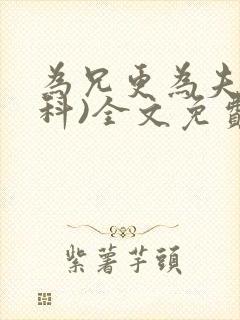 為兄更為夫
科)全文免費
紫薯芋頭